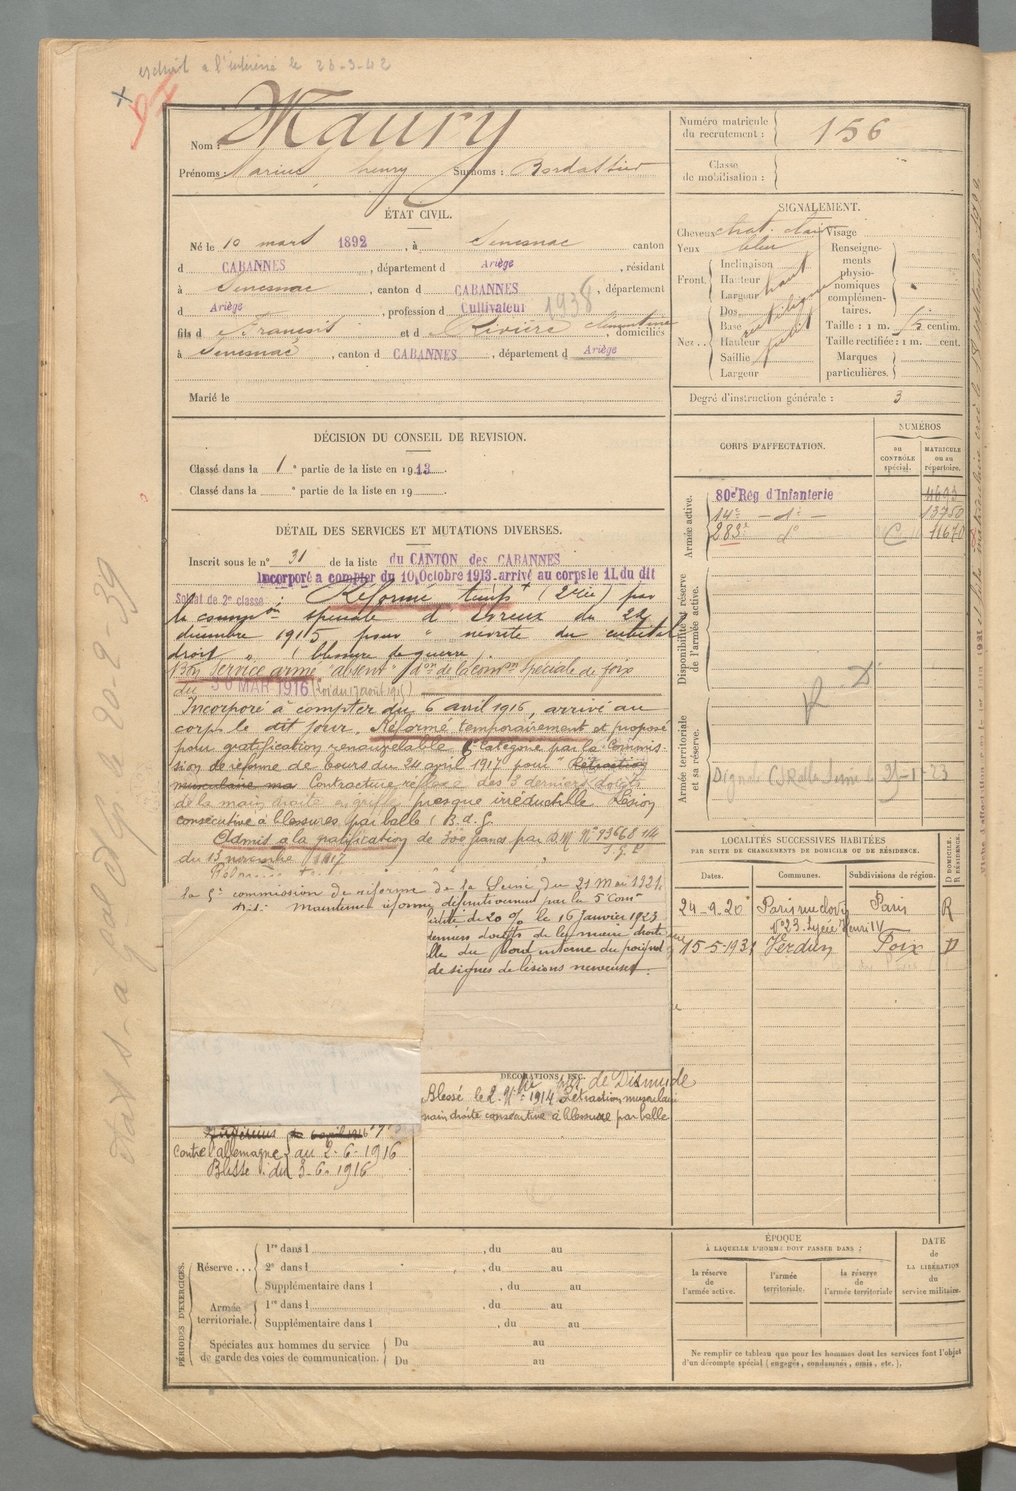 extrait à l'intéressé le 28-3-42
Nom : Maury
Prénoms : Marius, henry Surnoms : Bordassier
Numéro matricule du recrutement : 156
Classe de mobilisation :
ÉTAT CIVIL.
Né le 10 mars 1892, à Senesnac canton
d CABANNES, département d Ariège, résidant
à Senesnac, canton d CABANNES, département
d Ariège, profession d Cultivateur 1938
fils d François et d Rivière Clémentine, domiciliés
à Senesnac, canton d CABANNES, département d Ariège
Marié le
SIGNALEMENT.
Cheveux chat. clair Visage
Yeux bleu Renseignements physionomiques complémentaires.
Front. Inclinaison
Hauteur haut
Largeur
Nez .. Dos
Base rectiligne
Hauteur petit
Saillie
Largeur
Taille : 1 m. centim.
Taille rectifiée : 1 m. cent.
Marques particulières.
Degré d'instruction générale : 3
DÉCISION DU CONSEIL DE REVISION.
Classé dans la 1e partie de la liste en 1913.
Classé dans la e partie de la liste en 19
DÉTAIL DES SERVICES ET MUTATIONS DIVERSES.
Inscrit sous le n° 31 de la liste du CANTON des CABANNES
Incorporé a compter du 10 Octobre 1913. arrivé au corps le 11 du dit
Soldat de 2e classe. Réformé temps (2e cie) par
la common spéciale d'Evreux du 22
décembre 1915 pour " névrite du cubital
droit " blessure de guerre.
Bon service armé "absent" don de la comon spéciale de foix
du 30 MAR 1916 (Loi du 17 août 1915)
Incorporé à compter du 6 avril 1916, arrivé au
corps le dit jour. Réformé temporairement et proposé
pour gratification renouvelable 6e catégorie par la Commis-
sion de réforme de Tours du 24 avril 1917 pour " Rétraction
musculaire ma Contracture réflexe des 3 derniers doigts
de la main droite en griffe presque irréductible. Lésion
consécutive à blessures par balle (B. d. G.
Admis à la gratification de 300 francs par D.M. N° 93668 114
du 13 novembre 1917
la 5e commission de réforme de la Seine du 21 Mai 1921.
Maintenu réformé définitivement par la 5e Comon
de 20 % le 16 Janvier 1923
derniers doigts de la main droite
lle du bord interne du poignet
de signes de lésions nerveuses.
DÉCORATIONS, ETC.
près de Dixmude
Blessé le 2-9bre 1914 Rétraction musculaire
main droite consécutive à blessure par balle
Contre l'allemagne au 2-6-1916
Blessé du 3-6-1916
CORPS D'AFFECTATION.
NUMÉROS
DU CONTRÔLE spécial.
MATRICULE ou au répertoire.
Armée active.
80e Rég d'Infanterie 4693
14e - d° - 13750
283e d° C 11670
Disponibilité et réserve de l'armée active.
Armée territoriale et sa réserve.
25-1-23
LOCALITÉS SUCCESSIVES HABITÉES
PAR SUITE DE CHANGEMENTS DE DOMICILE OU DE RÉSIDENCE.
Dates. Communes. Subdivisions de région. D DOMICILE. R RÉSIDENCE.
24-9-20 Paris rue Clovis Paris R
N° 23. Lycée Henri IV
15-5-1931 Verdun Foix D
PÉRIODES D'EXERCICES.
Réserve ... 1re dans l , du au
2e dans l , du au
Supplémentaire dans l , du au
Armée territoriale. 1re dans l , du au
Supplémentaire dans l , du au
Spéciales aux hommes du service de garde des voies de communication. Du au
Du au
ÉPOQUE
À LAQUELLE L'HOMME DOIT PASSER DANS :
la réserve de l'armée active.
l'armée territoriale.
la réserve de l'armée territoriale
DATE de LA LIBÉRATION du service militaire.
Ne remplir ce tableau que pour les hommes dont les services font l'objet
d'un décompte spécial (engagés, condamnés, omis, etc.).